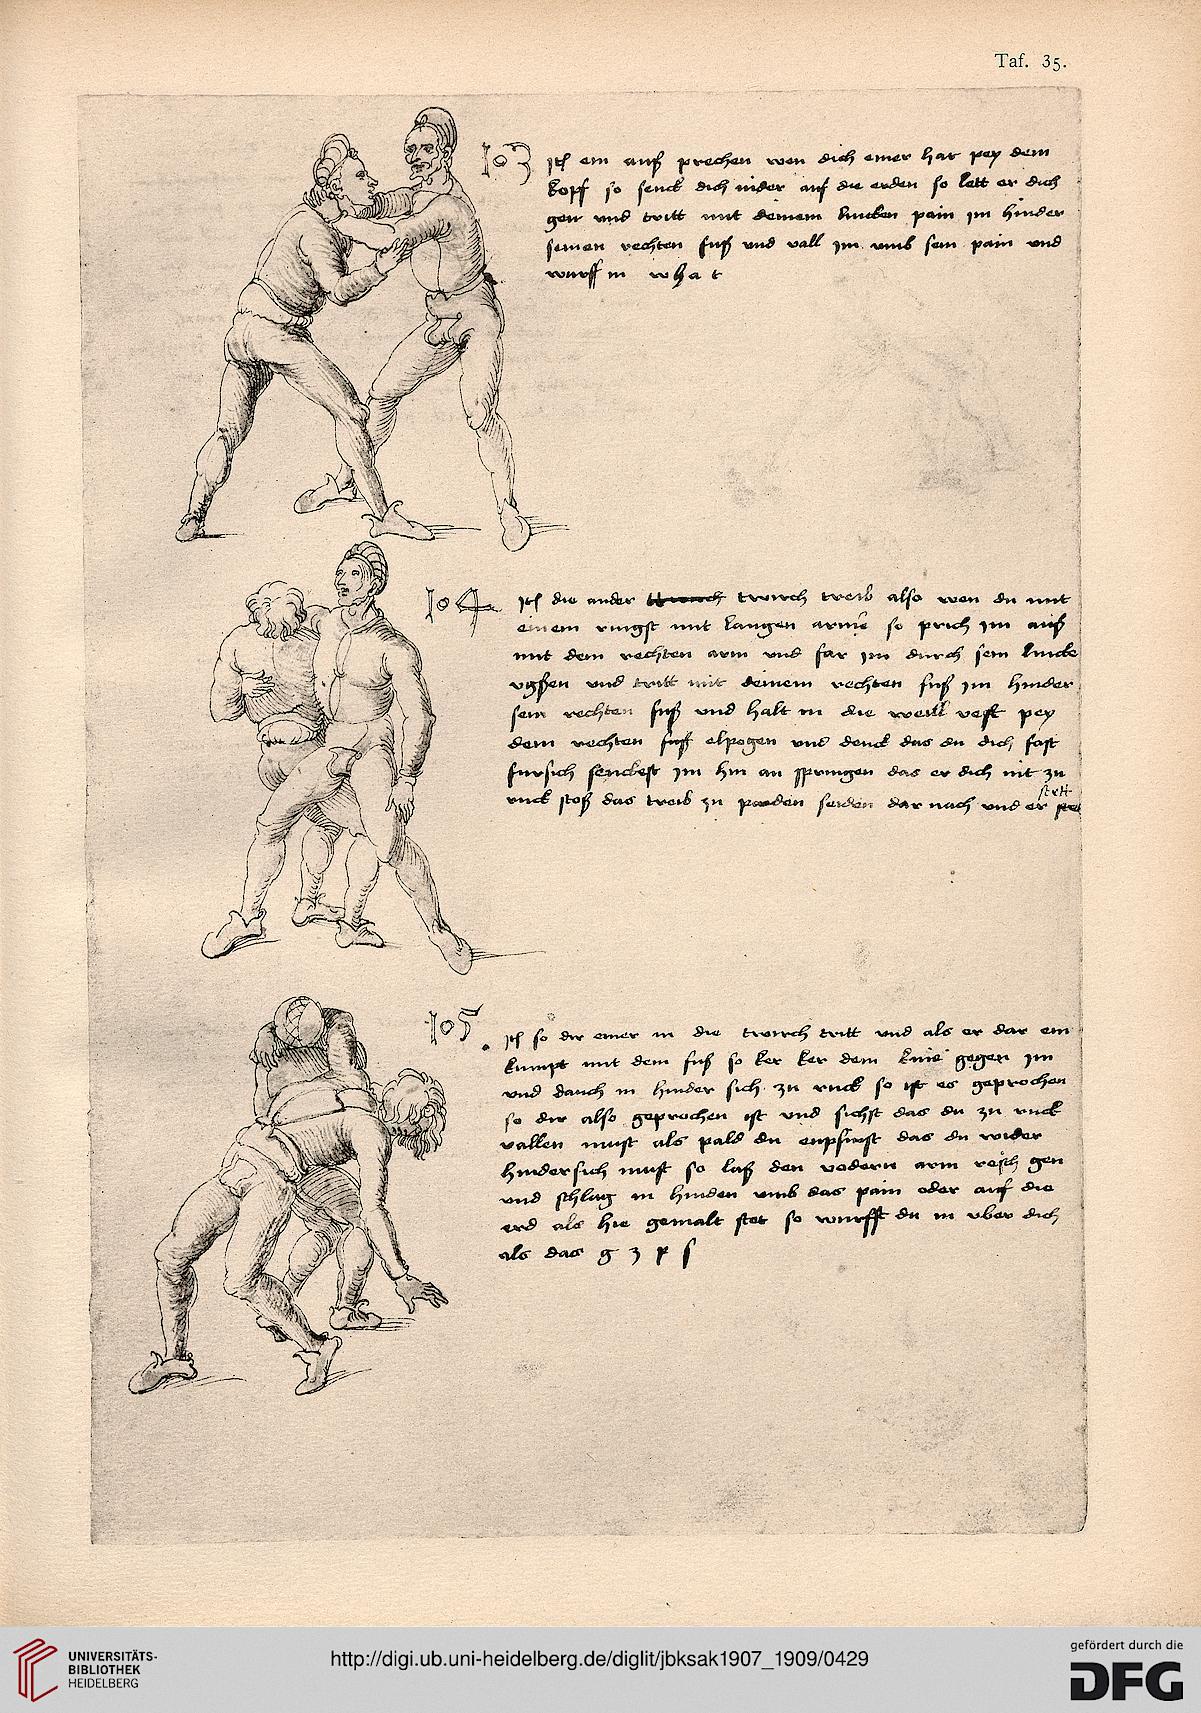 Taf. 35.
103 Itē ein auß prechen wen dich einer hat pey dem
kopf so senck dich nider auf die erden so lett er dich
gen und tritt mit deinem lincken pain im hinder
seinen rechten fuß und vall im umb sein pain und
wurff in w h a t
104 Itē die ander twirch treib also wen du mit
einem ringst mit langen arme so prich im auß
mit dem rechten arm und far im durch sein lincke
vgßen und tritt mit deinem rechten fuß im hinder
sein rechten fuß und halt in die weill vest pey
dem rechten elpogen und denck das du dich fast
fursich senckest im hin an springen das er dich nit zu
ruck stoß das treib zu peden seiden dar nach und er stett
105. Itē so dir einer in die twirch tritt und als er dar ein
kumpt mit dem fuß so ker ker dem knie gegen im
und dauch in hinder sich zu ruck so ist es geprochen
so dir also geprochen ist und sichst das du zu ruck
vallen must als pald du enpfinst das du wider
hindersich must so laß den vodern arm resch gen
und schlag in hinden umb das pain oder auf die
erd als hie gemalt stet so wurfft du in uber dich
als das g 3 p s
UNIVERSITÄTS-
BIBLIOTHEK
HEIDELBERG
http://digi.ub.uni-heidelberg.de/diglit/jbksak1907_1909/0429
gefördert durch die
DFG